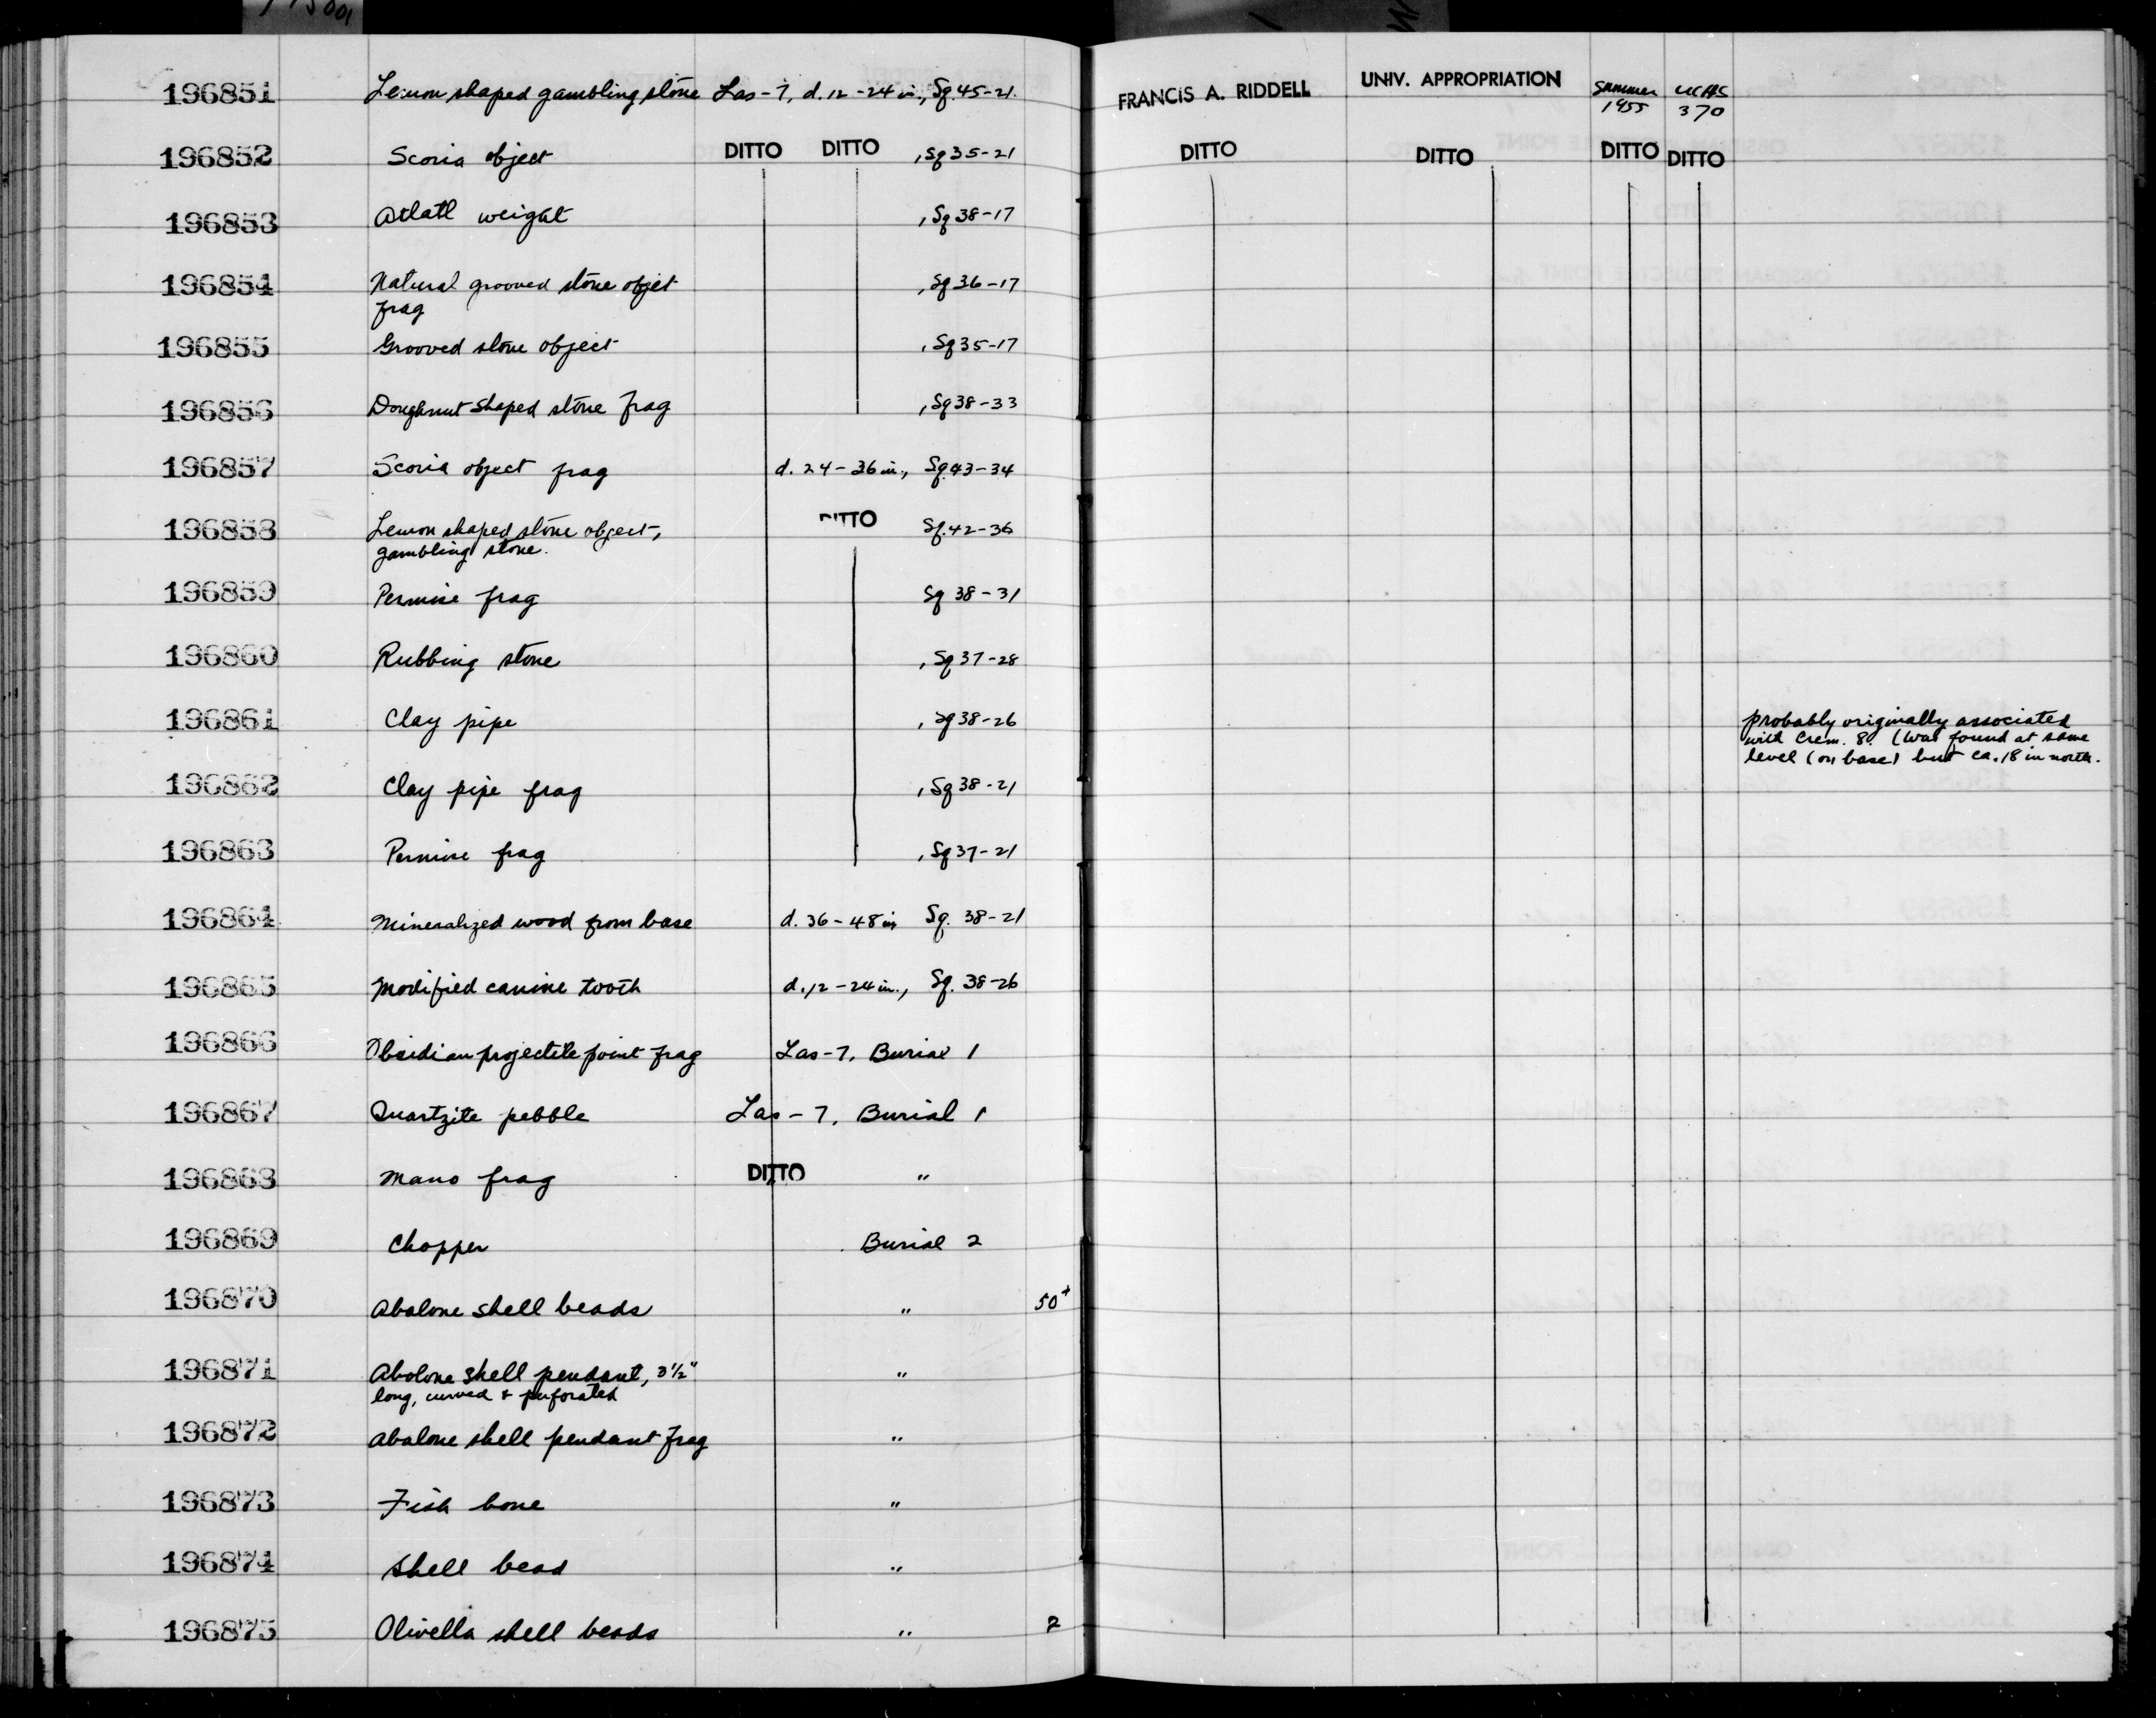 196851 Lemon shaped gambling stone Las-7, d.12-24 in, Sq.45-21. FRANCIS A. RIDDELL UNIV. APPROPRIATION Summer 1955 UCAS 370
196852 Scoria object DITTO DITTO , Sq 35-21 DITTO DITTO DITTO DITTO
196853 Atlatl weight , Sq 38-17
196854 Natural grooved stone objet , Sq 36-17
frag
196855 Grooved stone object , Sq 35-17
196856 Doughnut shaped stone frag , Sq 38-33
196857 Scoria object frag d. 24-36 in., Sq.43-34
196858 Lemon shaped stone object, DITTO Sq.42-36
gambling stone.
196859 Permise frag Sq 38-31
196860 Rubbing stone , Sq 37-28
196861 Clay pipe , Sq 38-26 probably originally associated
with Crem. 8. (Was found at same
level (on base) but ca. 18 in north.
196862 Clay pipe frag , Sq 38-21
196863 Permise frag , Sq 37-21
196864 Mineralized wood from base d. 36-48 in Sq. 38-21
196865 Modified canine tooth d. 12-24 in., Sq. 38-26
196866 Obsidian projectile point frag Las-7, Burial 1
196867 Quartzite pebble Las-7, Burial 1
196868 Mano frag DITTO "
196869 Chopper Burial 2
196870 Abalone shell beads " 50+
196871 Abolone shell pendant, 3½" "
long, curved & perforated
196872 Abalone shell pendant frag "
196873 Fish bone "
196874 Shell bead "
196875 Olivella shell beads " 2